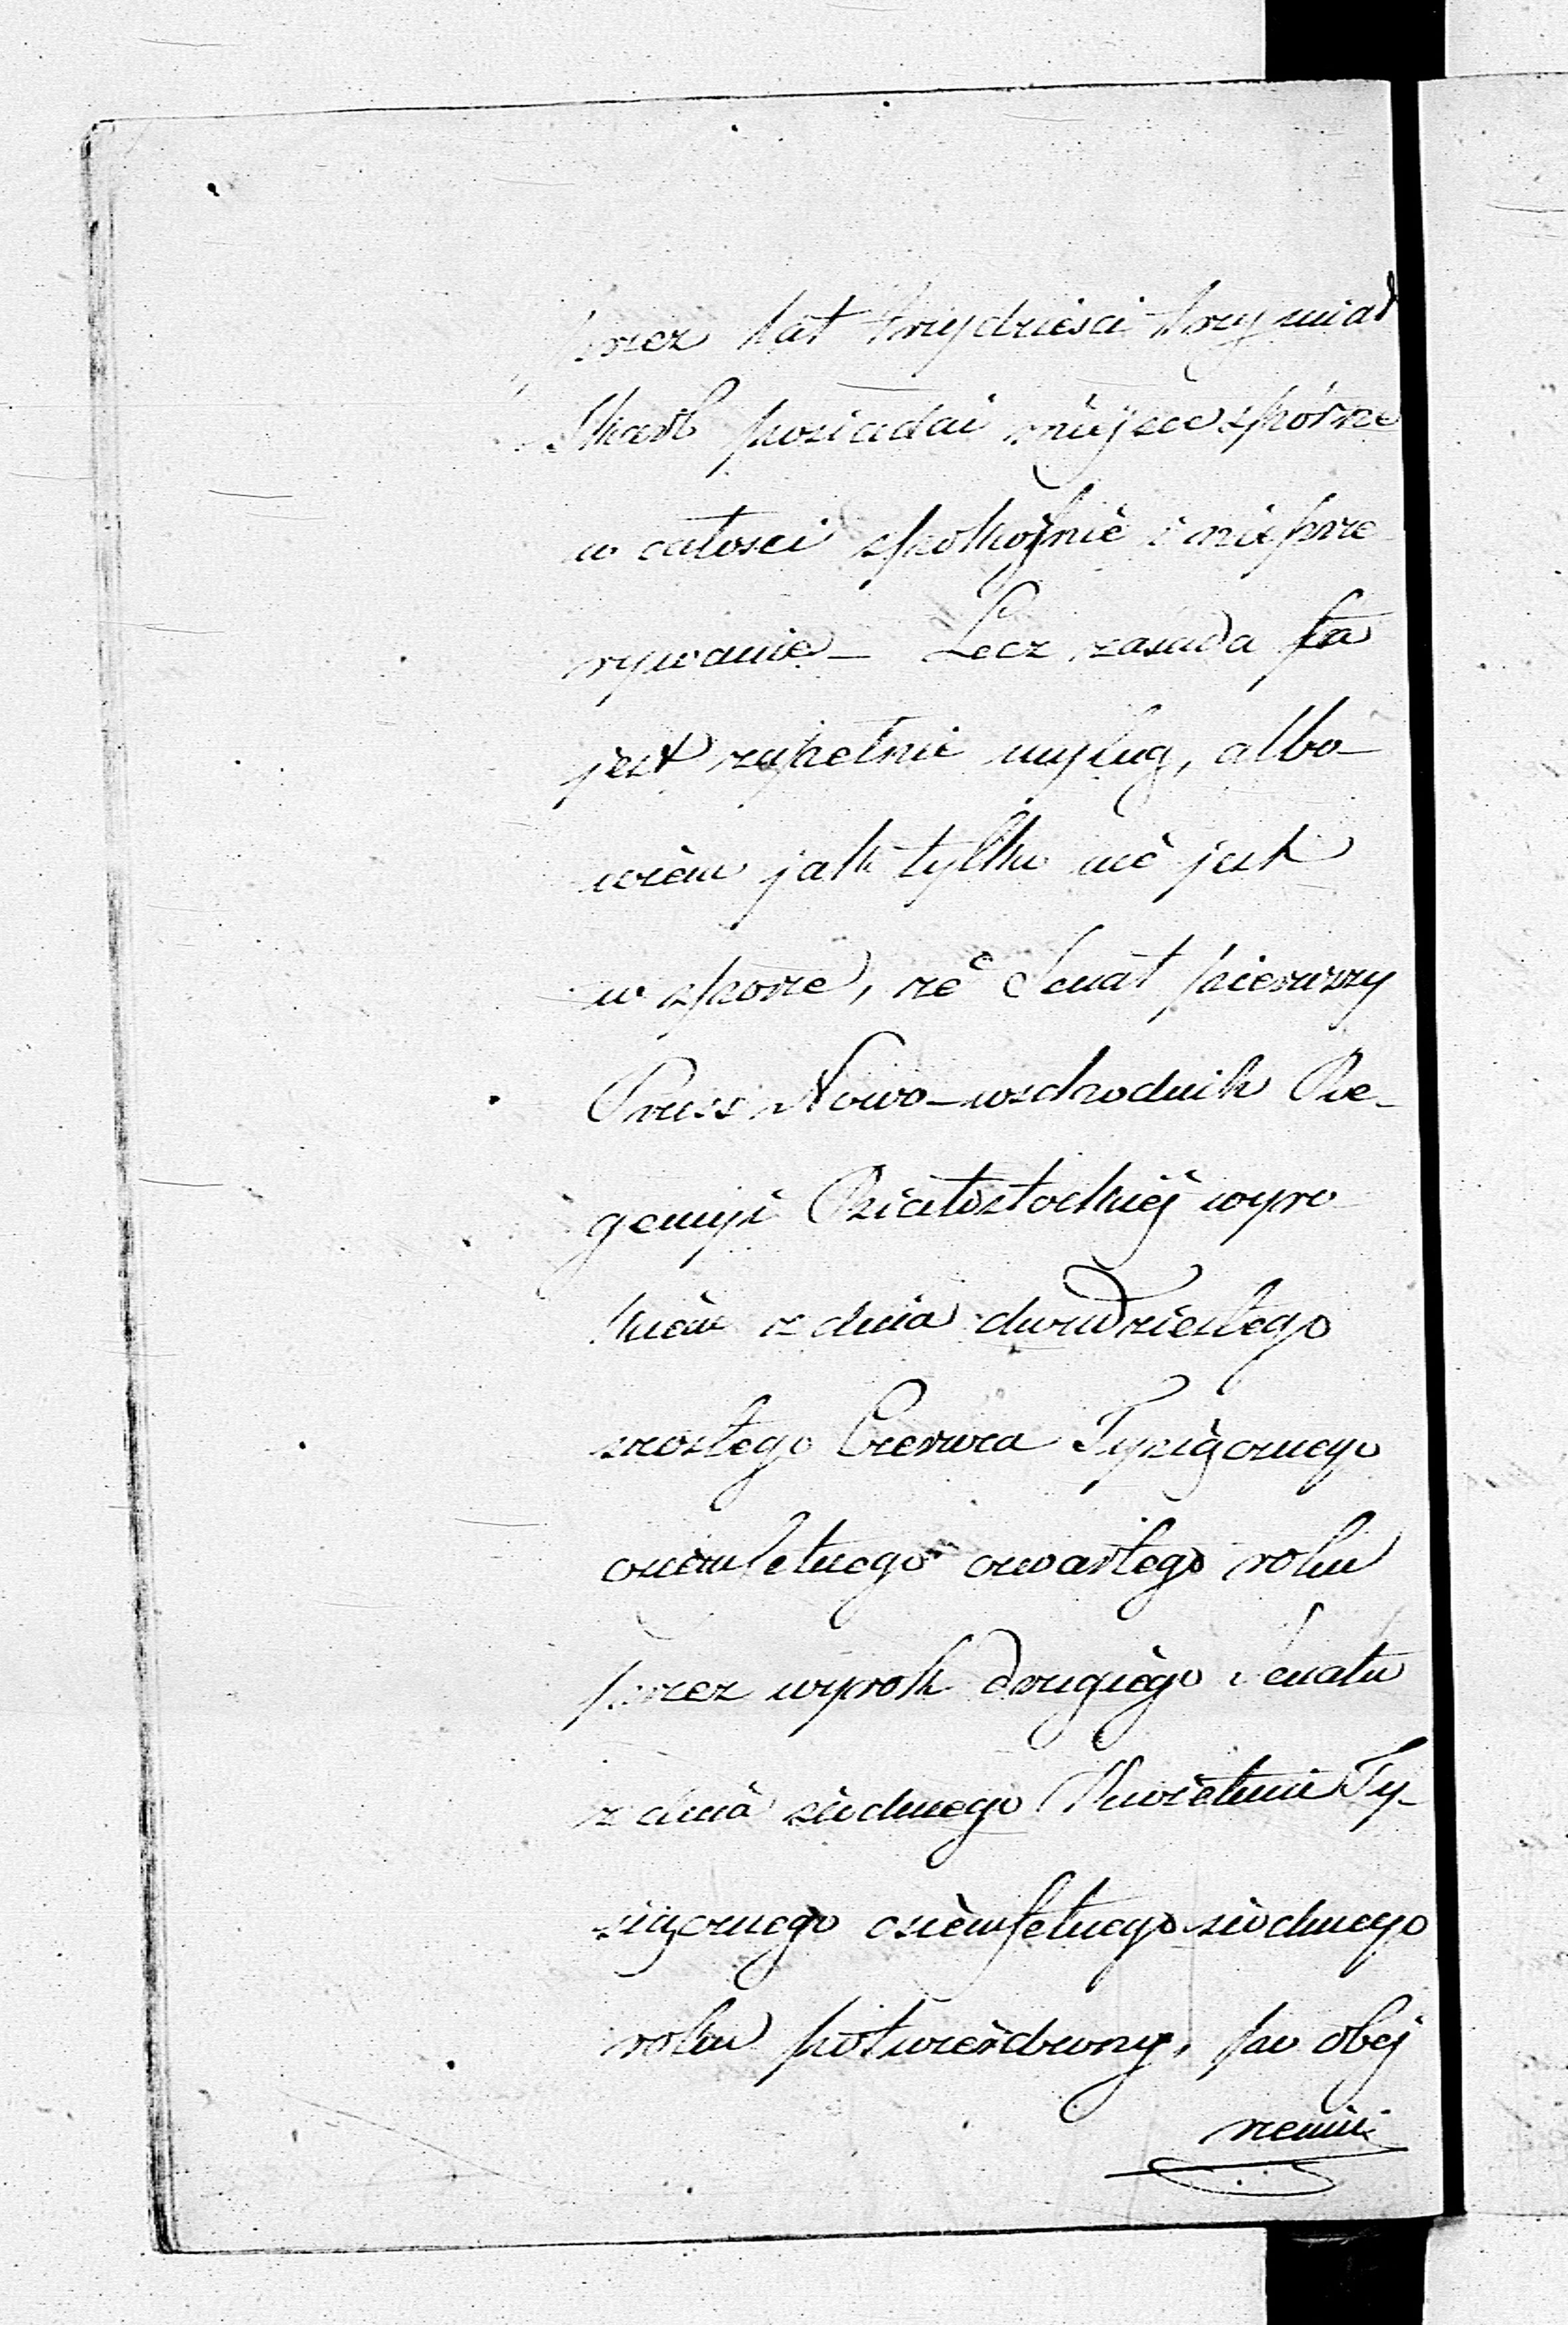 przez lat trzydzieści trzy miał
Skarb posiadać miejsce sporne
w całości spokojnie i nieprze
rywanie – Lecz zasada ta
jest zupełnie mylną, albo–
wièm jak tylko niè jest
w sporze, że Senat pierwszy
Pruss Nowo–wschodnich Re–
gencyi Białostockiéj wyro
kièm z dnia dwudziestego
szostego Czerwca Tysiącznego
osièmsetnego czwartego roku
przez wyrok drugiègo Senatu
z dnia siodmego Kwietnia Ty–
siącznego osièmsetnego siodmego
roku potwierdzony, po obej
rzeniu